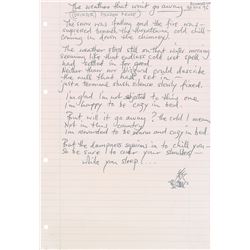 The weather that won't go away
The snow was falling and the fire was
supressed towards the threatening cold chill
coming in down the chimney.
The weather stood still on that wafer morning
seeming like that endless cold wet spell
had settled in for good
Neither thunder nor blizzard could describe
the melt that had set in —
just a termine slush silence slowly fixed.
I'm glad I'm not subjected to this one
I'm happy to be cozy in bed.
But will it go away? the cold I mean
Not in this country
I'm rewarded to be warm and cozy in bed.
But the dampness squirms in to chill you —
So be sure to cover your shoulders —
while you sleep!...